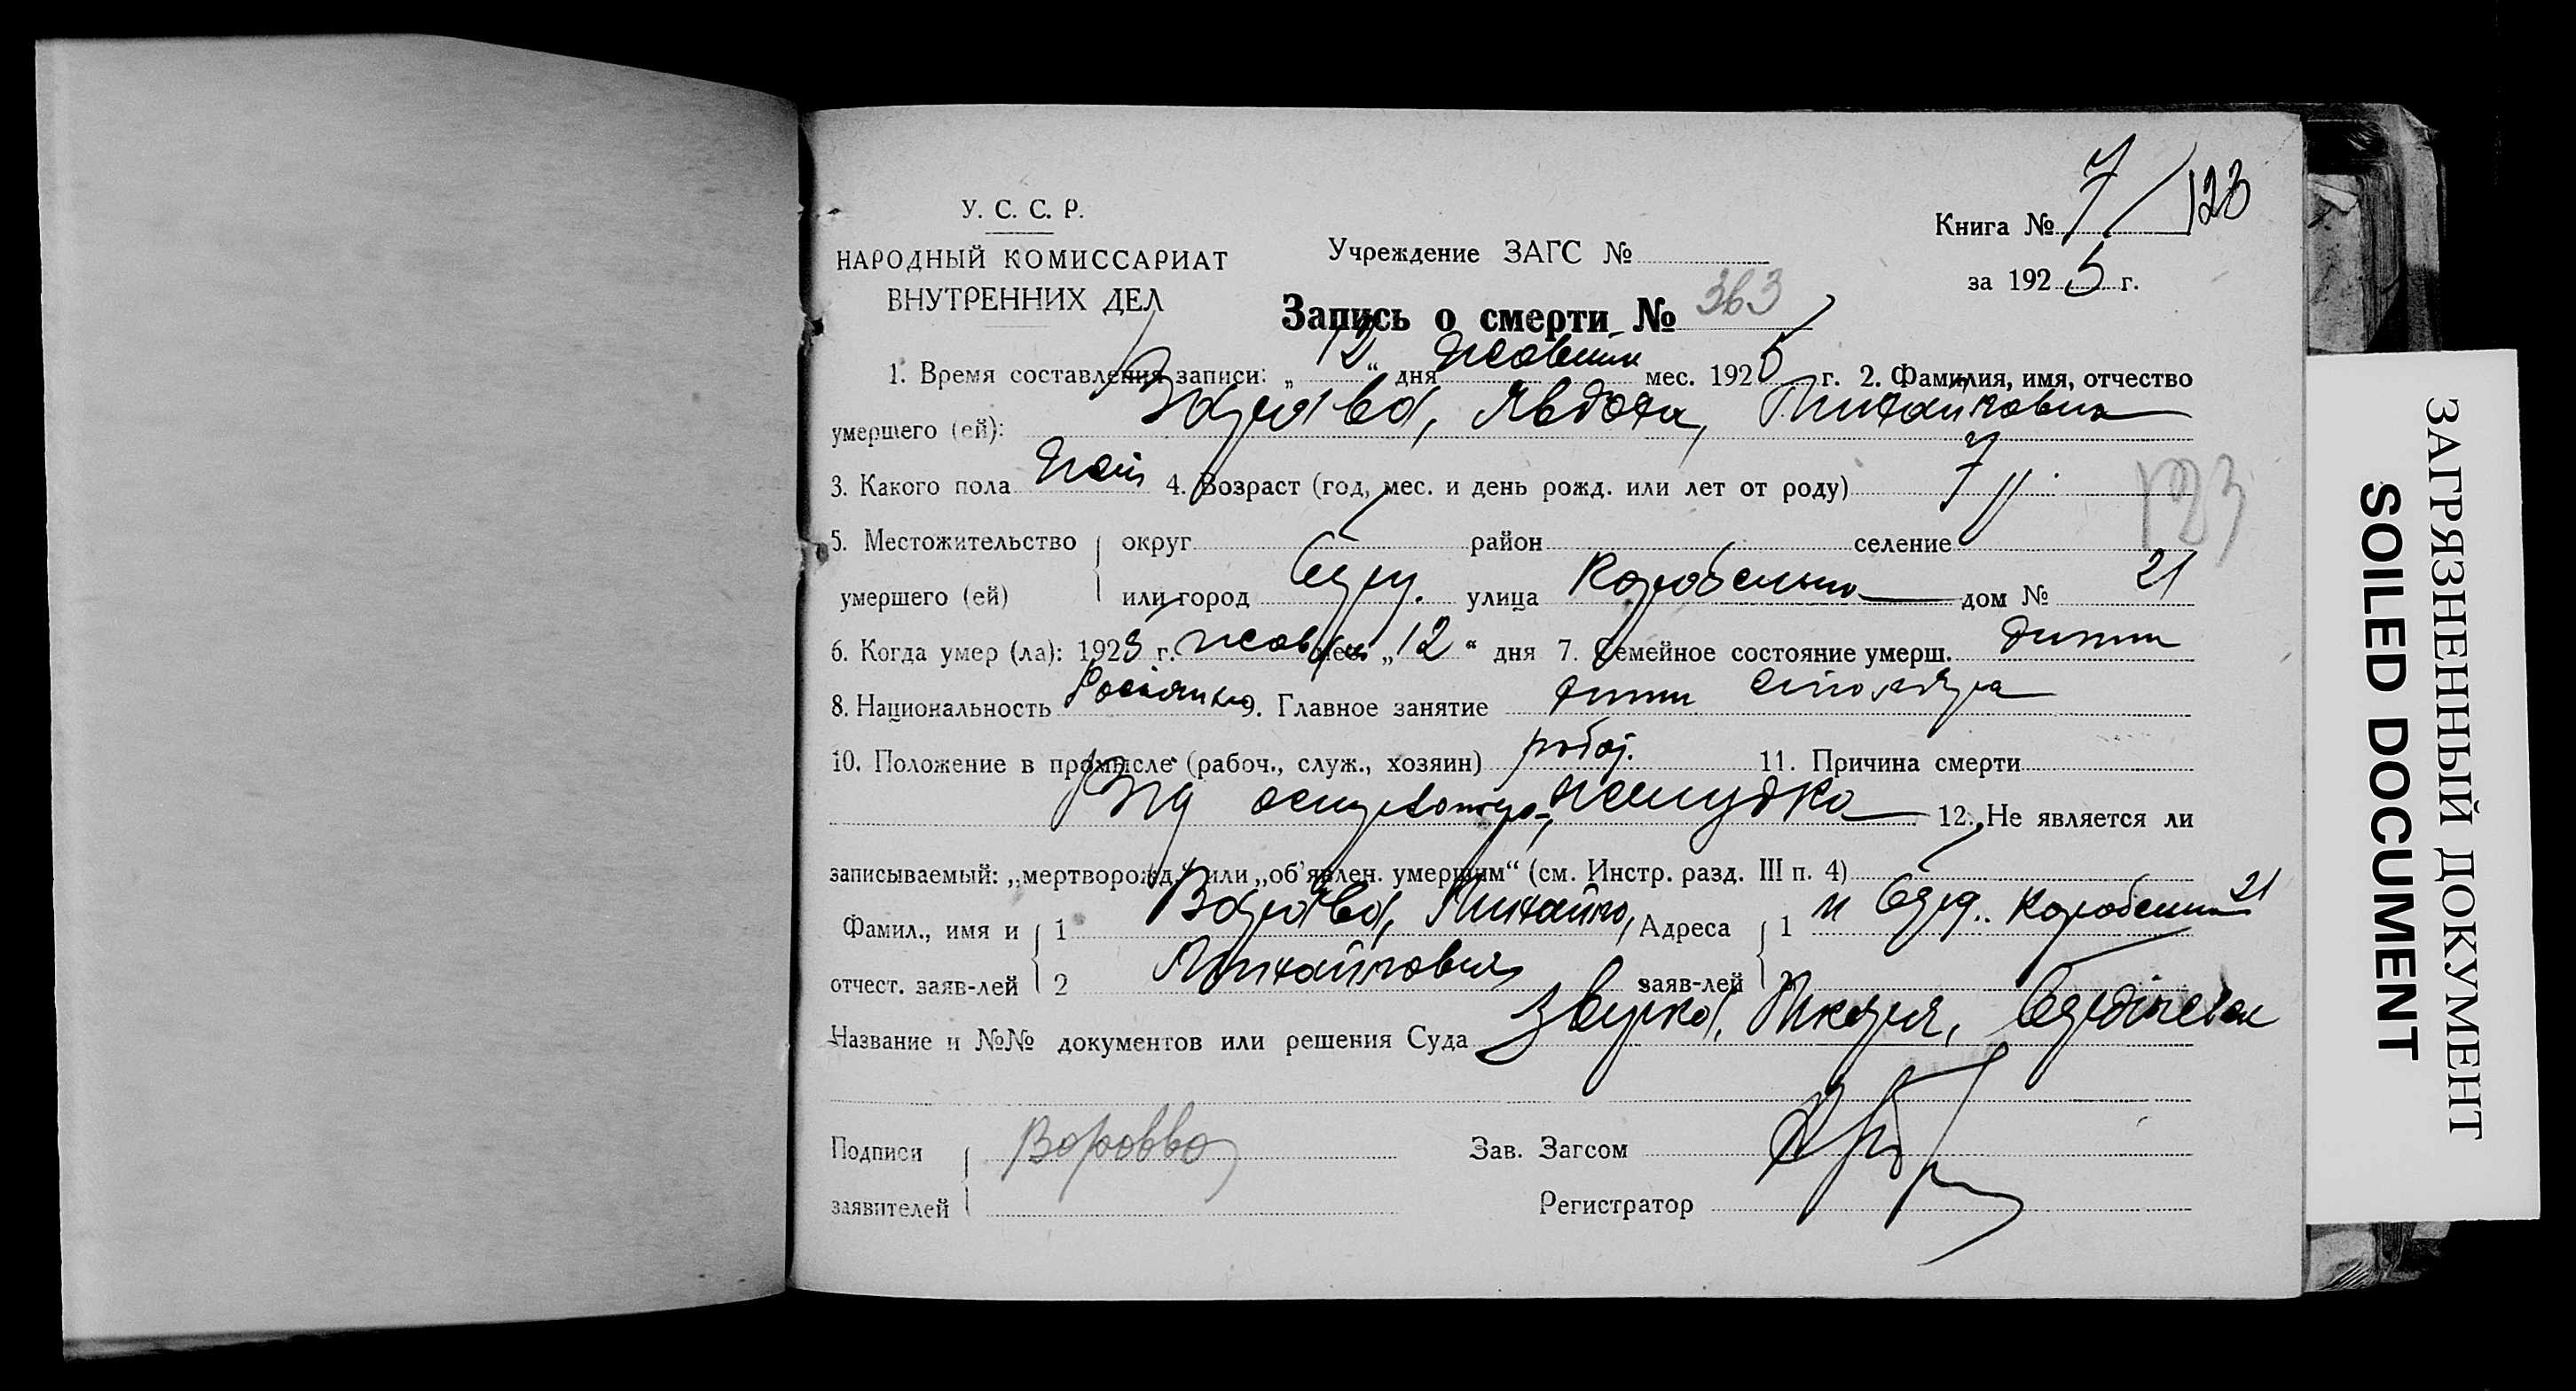 У. С. С. Р.
НАРОДНЫЙ КОМИССАРИАТ
ВНУТРЕННИХ ДЕЛ
Учреждение ЗАГС №
Книга № 7/123
за 1925 г.
Запись о смерти № 363
1. Время составления записи: „12“ дня Жовтня мес. 1925 г. 2. Фамилия, имя, отчество
умершего (ей): Явдоха, Михайловна
3. Какого пола жен 4. Возраст (год, мес. и день рожд. или лет от роду) 7
123
5. Местожительство округ район селение
умершего (ей) или город улица Коробельна дом № 21
6. Когда умер (ла): 192 г. жовтня мес. „12“ дня 7. Семейное состояние умерш. дитин
8. Национальность Росіянка 9. Главное занятие дитин столяра
10. Положение в промысле (рабоч., служ., хозяин) робоч. 11. Причина смерти
Від желудка 12. Не является ли
записываемый: „мертворожд.“ или „об'явлен. умершим“ (см. Инстр. разд. III п. 4)
Фамил., имя и 1 Михайло, Адреса 1 21
отчест. заяв-лей 2 Михайлович заяв-лей 2
Название и №№ документов или решения Суда
Подписи
заявителей
Зав. Загсом
Регистратор
ЗАГРЯЗНЕННЫЙ ДОКУМЕНТ
SOILED DOCUMENT